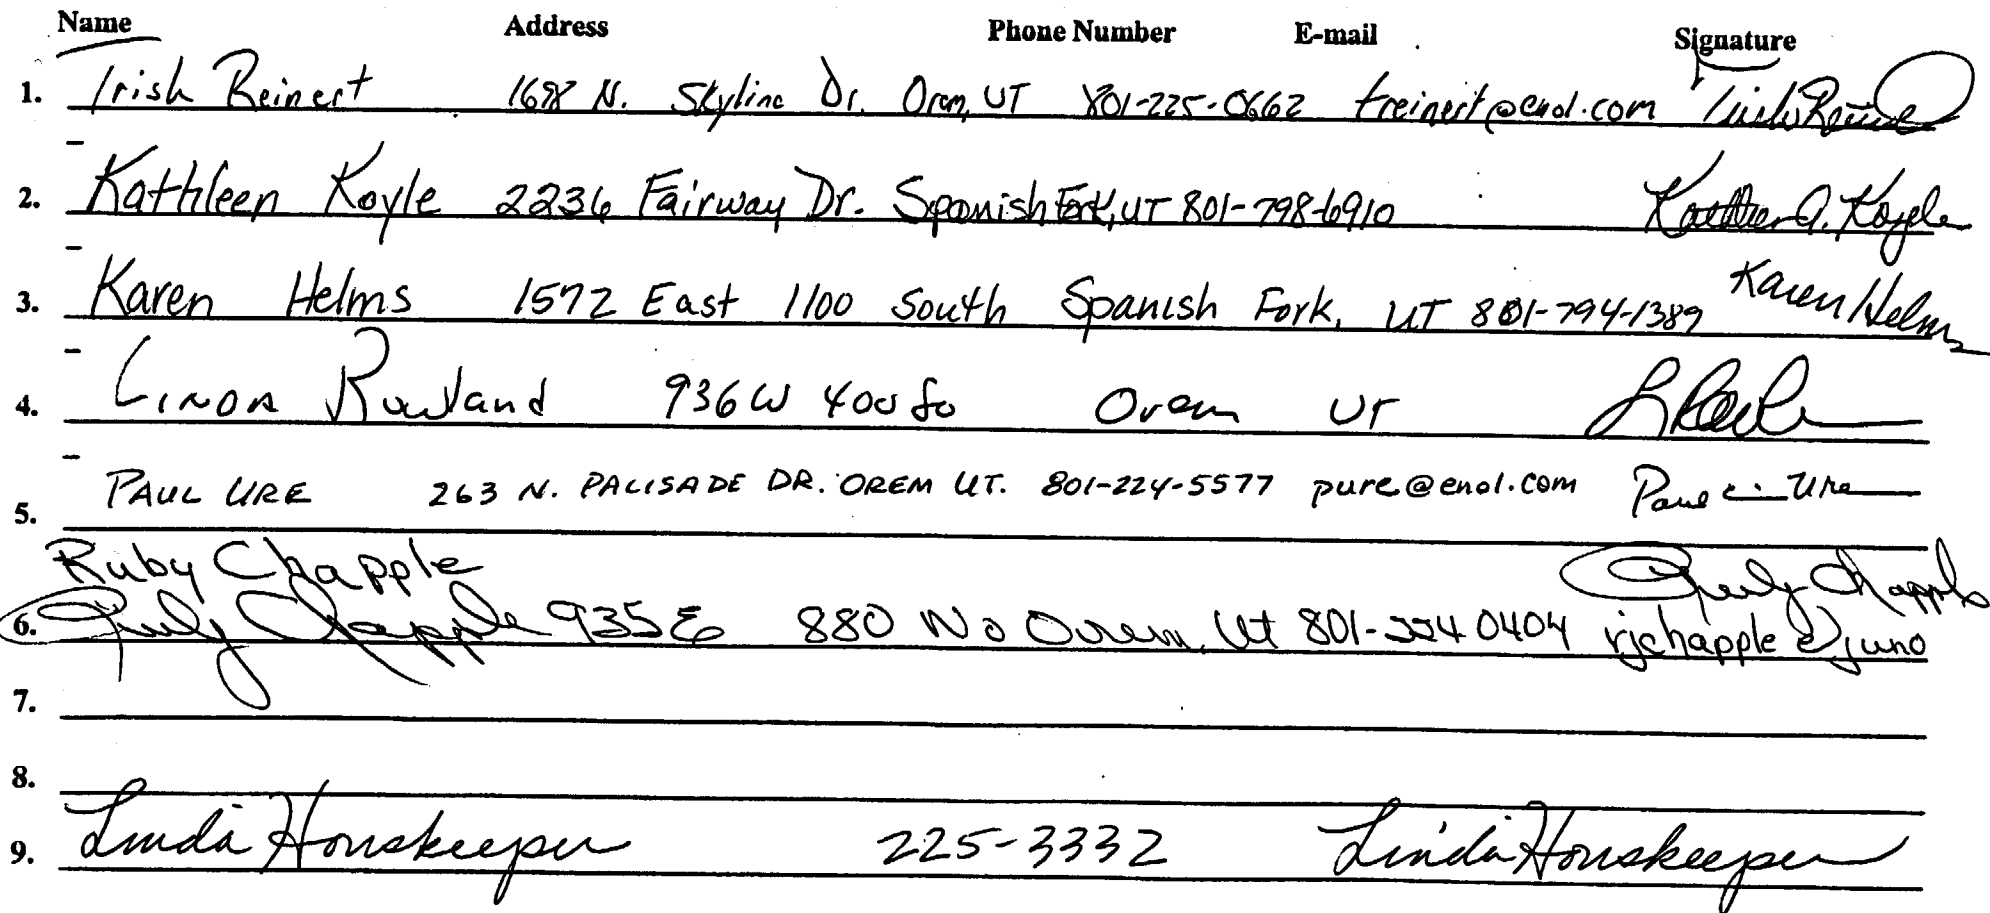 Name Address Phone Number E-mail Signature
1. Trish Reinert 1698 N. Skyline Dr. Orem, UT 801-225-0662 treinert@enol.com Trish Reinert
2. Kathleen Koyle 2236 Fairway Dr. Spanish Fork, UT 801-798-6910 Kathleen A. Koyle
3. Karen Helms 1572 East 1100 South Spanish Fork, UT 801-794-1389 Karen Helms
4. Linda Rowland 936 W 400 So Orem UT
5. PAUL URE 263 N. PALISADE DR. OREM UT. 801-224-5577 pure@enol.com Paul Ure
Ruby Chapple Ruby Chapple
6. Ruby Chapple 935 E 880 No Orem, Ut 801-224 0404 rjchapple@juno
7.
8.
9. Linda Houskeeper 225-3332 Linda Houskeeper